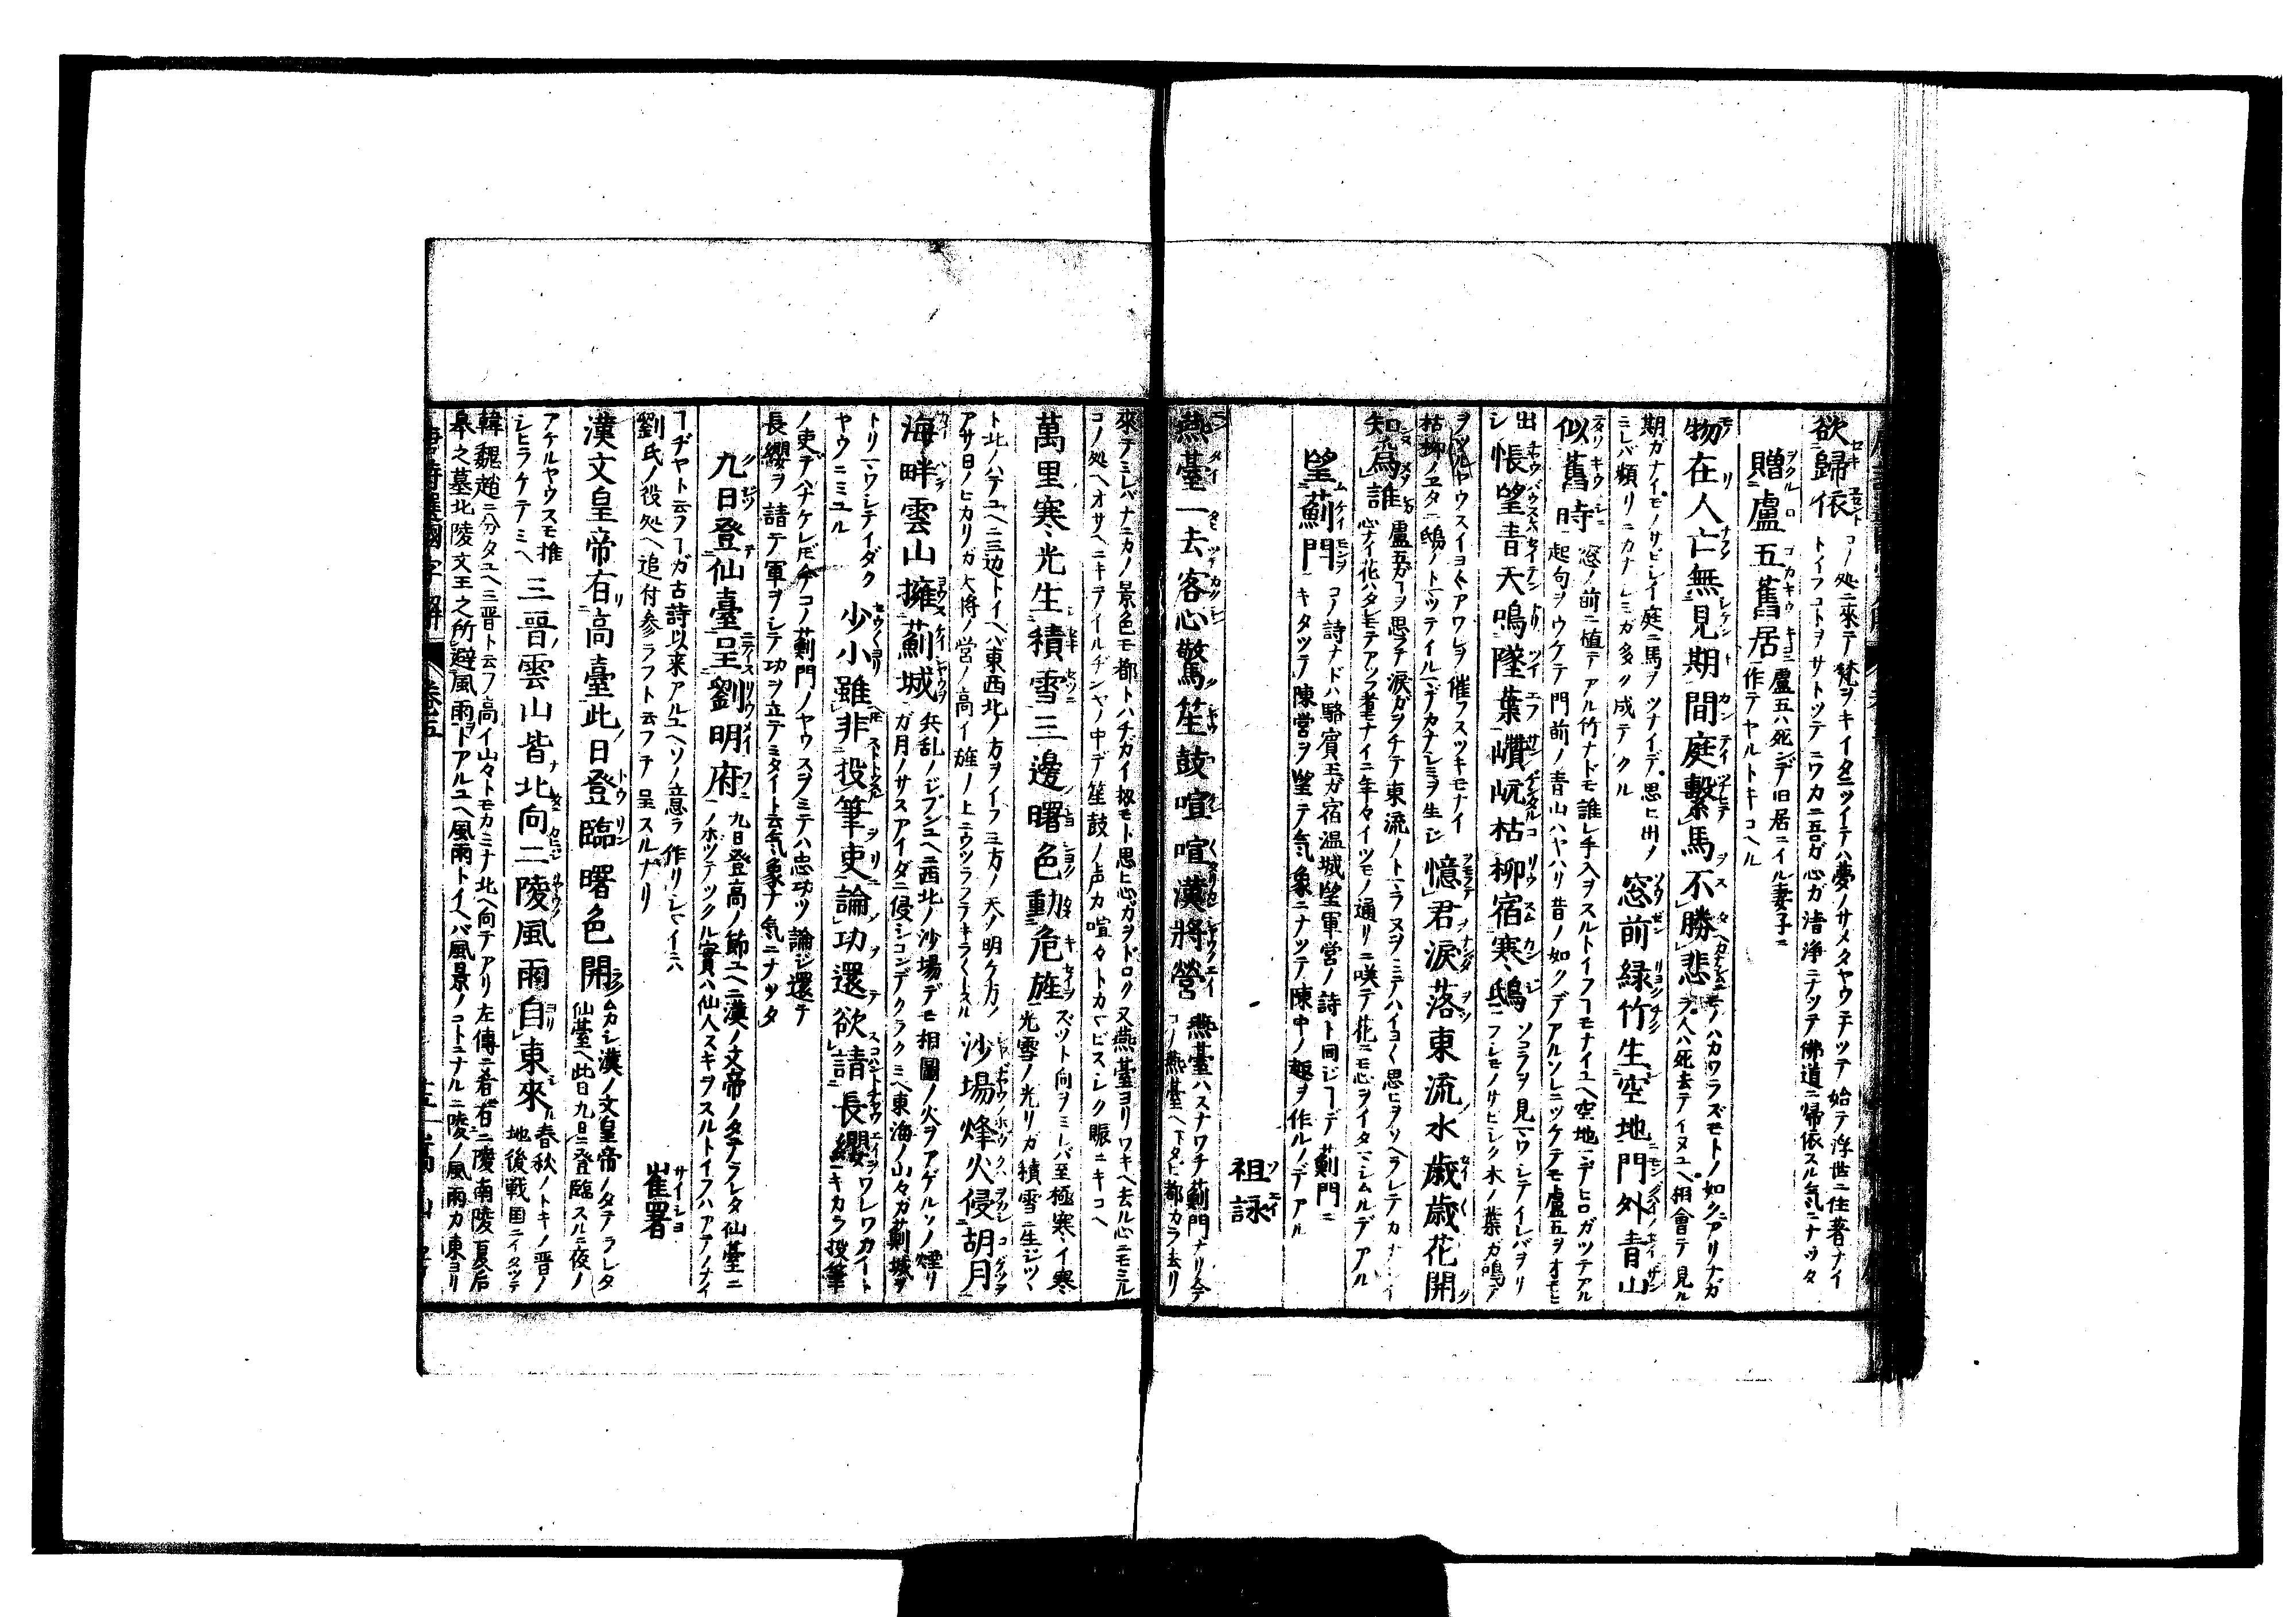 欲歸依
コノ処ニ來テ梵ヲキイタニツイテハ夢ノサメタヤウナツテ始テ浮世ニ住著ナイ
トイフコトヲサトツテニワカニ吾ガ心ガ清浄ニナツテ佛道ニ帰依スル気ニナツタ
贈盧五舊居
盧五ハ死シデ旧居ニイル妻子ニ
作テヤルトキコヘル
物在人亡無見期間庭繫馬不勝悲
モノハカワラズモトノ如クアリナガ
ラ人ハ死去テイヌユヘ相會テ見ル
期ガナイモノサビシイ庭ニ馬ヲツナイデ思ヒ出ノ
ミレバ頻リニカナシミガ多ク成テクル
窓前緑竹生空地門外青山
似舊時
窓ノ前ニ植テアル竹ナドモ誰レ手入ヲスルトイフヿモナイユヘ空地マデヒロガツテアル
起句ヲウケテ門前ノ青山ハヤハリ昔ノ如クデアルソレニツケテモ盧五ヲオモヒ
出シ
悵望青天鳴墜葉巑岏枯柳宿寒鴟
ソコラヲ見マワシテイレバヲリ
フシモノサビシク木ノ葉ガ鳴テ
枯柳ノエタニ鴟ノトマツテイルマデカナシミヲ生シ
憶君淚落東流水歳歳花開
知爲誰
心ナイ花ハタレモテアツフ者モナイニ年々イツモノ通リニ咲テ花ニモ心ヲイタマシムルデアル
望薊門
コノ詩ナドハ駱賓王ガ宿温城望軍営ノ詩ト同ジヿデ薊門ニ
キタツテ陳営ヲ望テ気象ニナツテ陳中ノ趣ヲ作ルノデアル
祖詠
燕臺一去客心驚笙鼓喧喧漢將營
燕臺ハスナワチ薊門ナリ今
コノ燕臺ヘ下タヒ都カラ去リ
來テミレバナニカノ景色モ都トハチガイ扨モト思ヒ心ガヲドロク又燕臺ヨリワキヘ去ル心ニモミル
コノ処ヘオサヘニキテイルチンヤノ中デ笙鼓ノ声カ喧々トカマビスシク賑ニキコヘ
萬里寒光生積雪三邊曙色動危旌
ズツト向ヲミレバ至極寒イ寒
光雪ノ光リガ積雪ニ生ジツヽ
ト北ノハテユヘニ三边トイヘバ東西北ノ方ヲイフ三方ノ天ノ明ケ方ノ
アサ日ノヒカリガ大将ノ営ノ高イ旌ノ上ニウツラフテキラくスル
沙場烽火侵胡月
海畔雲山擁薊城
兵乱ノジブンユヘニ西北ノ沙場デモ相圖ノ火ヲアゲルソノ煙リ
ガ月ノサスアイダニ侵シコンデクラクミヘ東海ノ山々ガ薊城ヲ
トリマワシテイダク
ヤウニミユル
少小雖非投筆吏論功還欲請長纓
ワレワカイト
キカラ投筆
ノ吏デハナケレドモコノ薊門ノヤウスヲミテハ忠功ヲ論ジ還テ
長纓ヲ請テ軍ヲシテ功ヲ立テミタイト云気象ナ気ニナツタ
九日登仙臺呈劉明府
九日登高ノ節ユヘニ漢ノ文帝ノタテラレタ仙臺ニ
ノボツテツクル實ハ仙人スキヲスルトイフハアテノナイ
ヿヂヤト云フヿガ古詩以来アルユヘソノ意ヲ作リシマイニハ
劉氏ノ役処ヘ追付参ラフト云フテ呈スルナリ
崔署
漢文皇帝有高臺此日登臨曙色開
ムカシ漢ノ文皇帝ノタテラレタ
仙臺ヘ此日九日ニ登臨スルニ夜ノ
アケルヤウスモ推
シヒラケテミヘ
三晉雲山皆北向二陵風雨自東來
春秋ノトキノ晋ノ
地後戦国ニイタツテ
韓魏趙ニ分タユヘ三晋ト云フ高イ山々トモカミナ北ヘ向テアリ左傳ニ殽有二陵南陵夏后
皐之墓北陵文王之所避風雨トアルユヘ風雨トイヘバ風景ノコトニナル二陵ノ風雨カ東ヨリ
唐詩選國字解 卷五